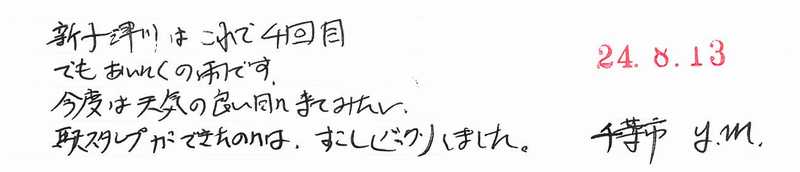 新十津川はこれで4回目
でもあいにくの雨です.
今度は天気の良い日に来てみたい.
駅スタンプができたのには、すこしビックリしました。
24.8.13
千葉市 Y.M.